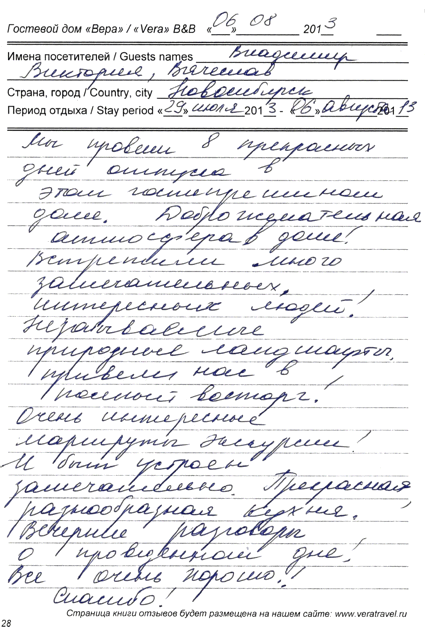 Гостевой дом «Вера» / «Vera» B&B «06» 08 2013
Имена посетителей / Guests names Владимир
Виктория, Вячеслав
Страна, город / Country, city г. Новосибирск
Период отдыха / Stay period «29» июля 2013 - «06» августа 2013
Мы провели 8 прекрасных
дней отпуска в
этом гостеприимном
доме. Доброжелательная
атмосфера в доме!
Встретили много
замечательных,
интересных людей!
Незабываемые
природные ландшафты,
привели нас в
полный восторг!
Очень интересные
маршруты экскурсии!
И быт устроен
замечательно. Прекрасная
разнообразная кухня!
Вечерние разговоры
о проведенном дне!
Все очень хорошо!!
Спасибо!
Страница книги отзывов будет размещена на нашем сайте: www.veratravel.ru
28